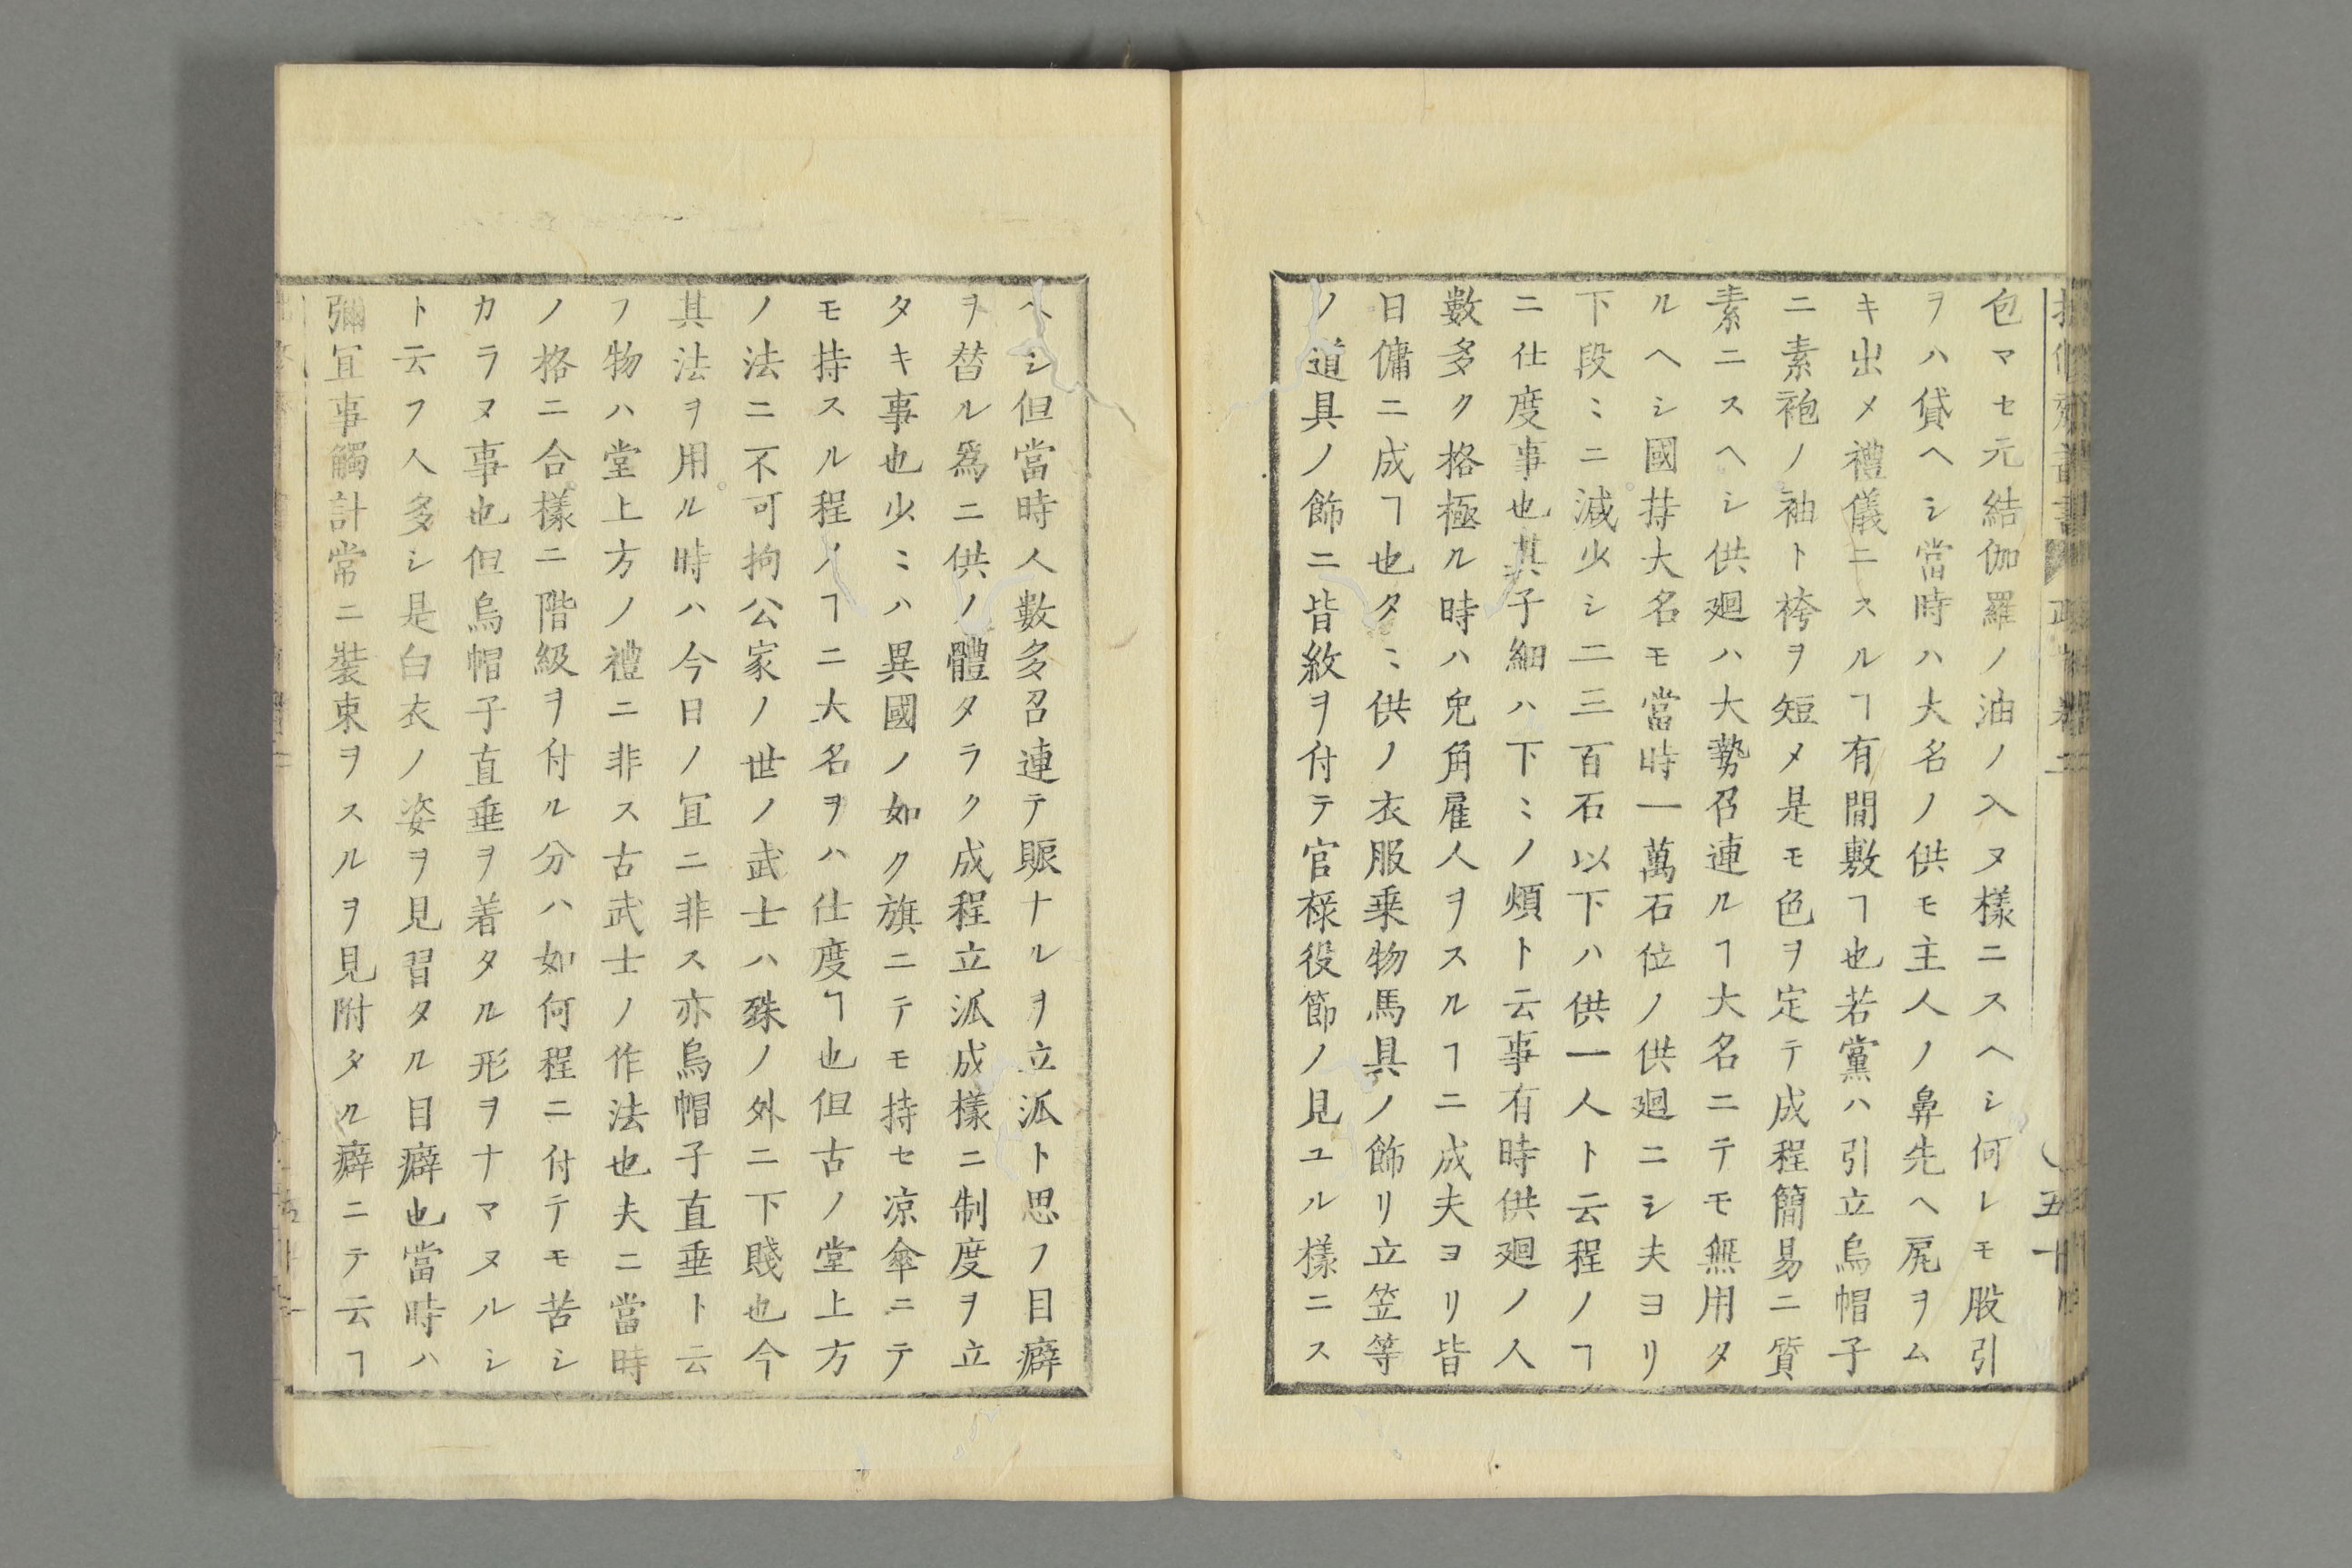 包マセ元結伽羅ノ油ノ入ヌ樣ニスヘシ何レモ股引
ヲハ貸ヘシ當時ハ大名ノ供モ主人ノ鼻先ヘ尻ヲム
キ出メ禮儀ニスルヿ有間敷ヿ也若黨ハ引立烏帽子
ニ素袍ノ袖ト袴ヲ短メ是モ色ヲ定テ成程簡易ニ質
素ニスヘシ供廻ハ大勢召連ルヿ大名ニテモ無用タ
ルヘシ國持大名モ當時一萬石位ノ供廻ニシ夫ヨリ
下段〻ニ減少シ二三百石以下ハ供一人ト云程ノヿ
ニ仕度事也其子細ハ下〻ノ煩ト云事有時供廻ノ人
數多ク格極ル時ハ兎角雇人ヲスルヿニ成夫ヨリ皆
日傭ニ成ヿ也タ〻供ノ衣服乘物馬具ノ飾リ立笠等
ノ道具ノ飾ニ皆紋ヲ付テ官祿役節ノ見ユル樣ニス
五十
ヘシ但當時人數多召連テ賑ナルヲ立派ト思フ目癖
ヲ替ル爲ニ供ノ體タラク成程立派成樣ニ制度ヲ立
タキ事也少〻ハ異國ノ如ク旗ニテモ持セ凉傘ニテ
モ持スル程ノヿニ大名ヲハ仕度ヿ也但古ノ堂上方
ノ法ニ不可拘公家ノ世ノ武士ハ殊ノ外ニ下賤也今
其法ヲ用ル時ハ今日ノ冝ニ非ス亦烏帽子直垂ト云
フ物ハ堂上方ノ禮ニ非ス古武士ノ作法也夫ニ當時
ノ格ニ合樣ニ階級ヲ付ル分ハ如何程ニ付テモ苦シ
カラヌ事也但烏帽子直垂ヲ着タル形ヲナマヌルシ
ト云フ人多シ是白衣ノ姿ヲ見習タル目癖也當時ハ
彌冝事觸計常ニ裝束ヲスルヲ見附タル癖ニテ云ヿ